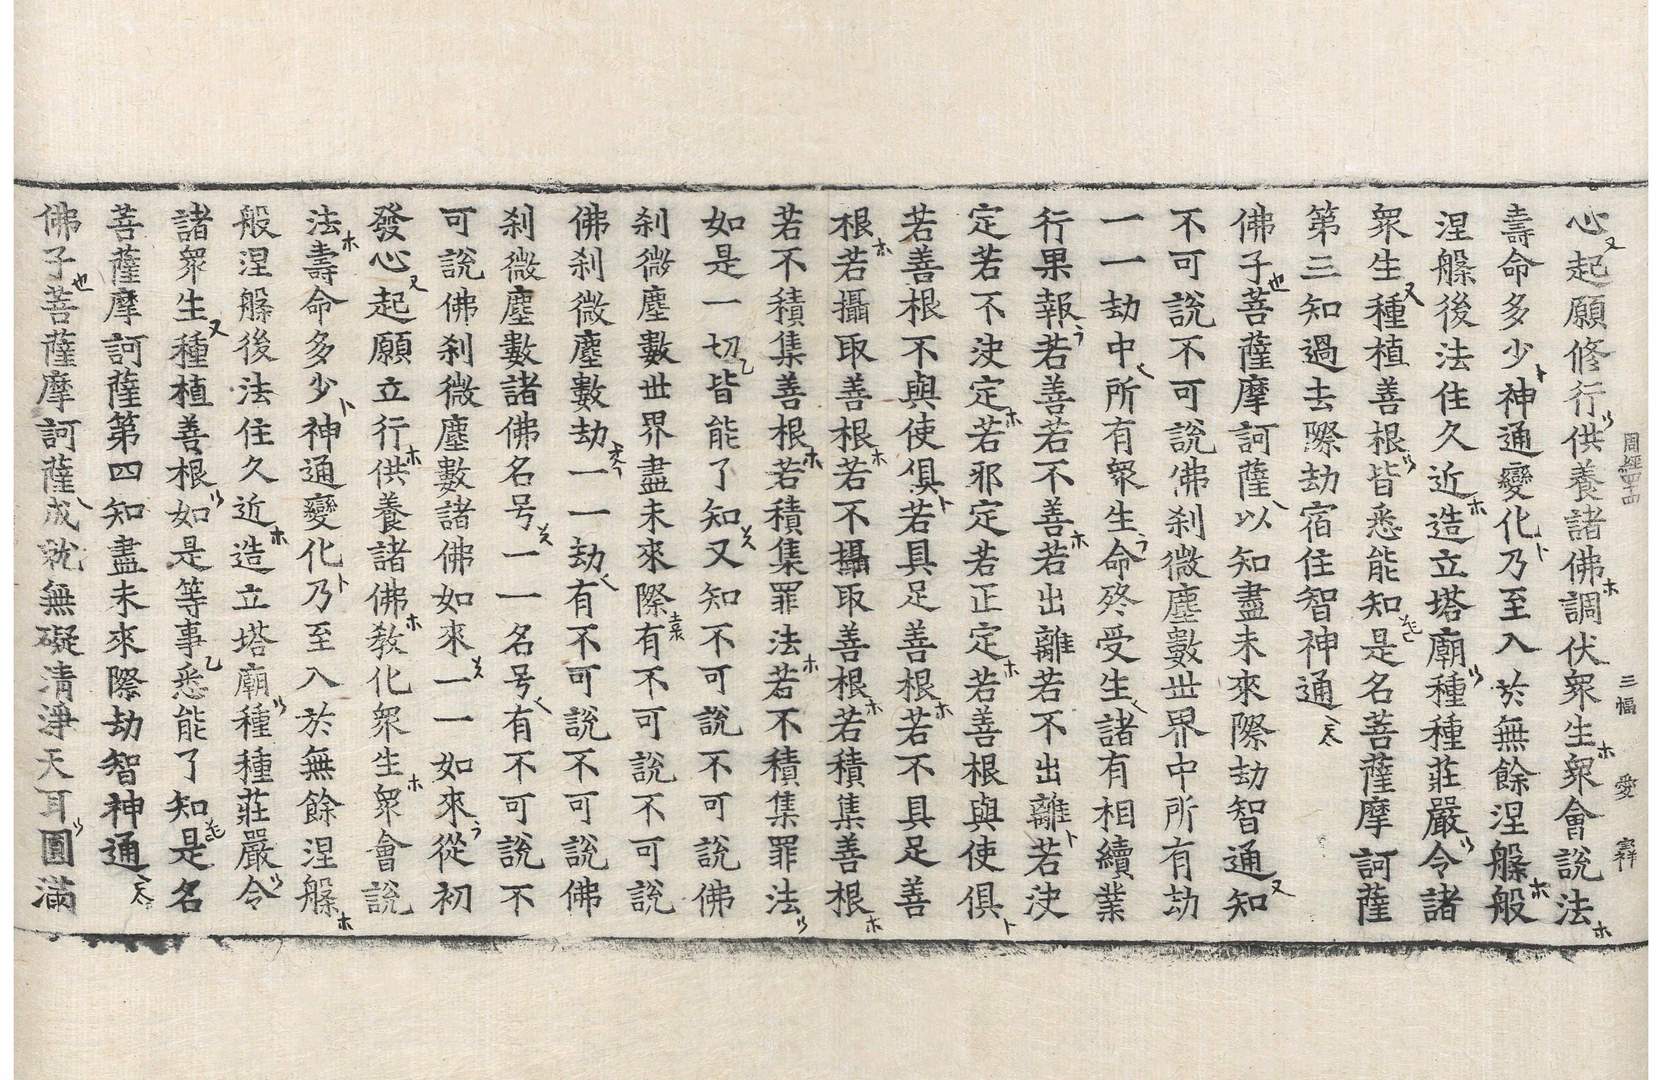 周經
三幅
愛
心起願修行供養諸佛調伏眾生眾會說法
壽命多少神通變化乃至入於無餘涅槃般
涅槃後法住久近造立塔廟種種莊嚴令諸
眾生種植善根皆悉能知是名菩薩摩訶薩
第三知過去際劫宿住智神通
佛子菩薩摩訶薩以知盡未來際劫智通知
不可說不可說佛剎微塵數世界中所有劫
一一劫中所有眾生命終受生諸有相續業
行果報若善若不善若出離若不出離若決
定若不決定若邪定若正定若善根與使俱
若善根不與使俱若具足善根若不具足善
根若攝取善根若不攝取善根若積集善根
若不積集善根若積集罪法若不積集罪法
如是一切皆能了知又知不可說不可說佛
剎微塵數世界盡未來際有不可說不可說
佛剎微塵數劫一一劫有不可說不可說佛
剎微塵數諸佛名号一一名号有不可說不
可說佛剎微塵數諸佛如來一一如來從初
發心起願立行供養諸佛教化眾生眾會說
法壽命多少神通變化乃至入於無餘涅槃
般涅槃後法住久近造立塔廟種種莊嚴令
諸眾生種植善根如是等事悉能了知是名
菩薩摩訶薩第四知盡未來際劫智神通
佛子菩薩摩訶薩成就無礙清淨天耳圓滿